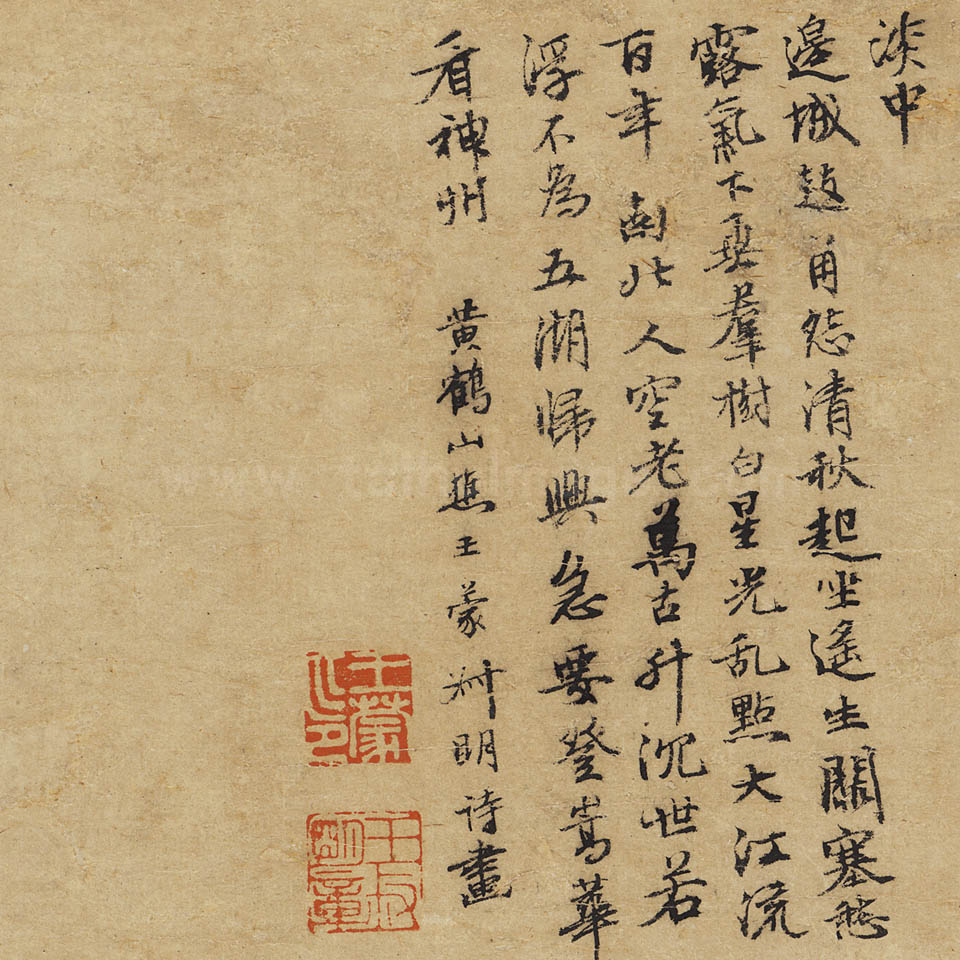 淡中
邊城鼓角怨清秋起坐遙生關塞愁
露氣下垂羣樹白星光乱點大江流
百年南北人空老萬古升沉世若
浮不為五湖歸興急要登嵩華
看神州　黃鶴山樵王蒙叔明诗畫
王蒙之印
王叔明章